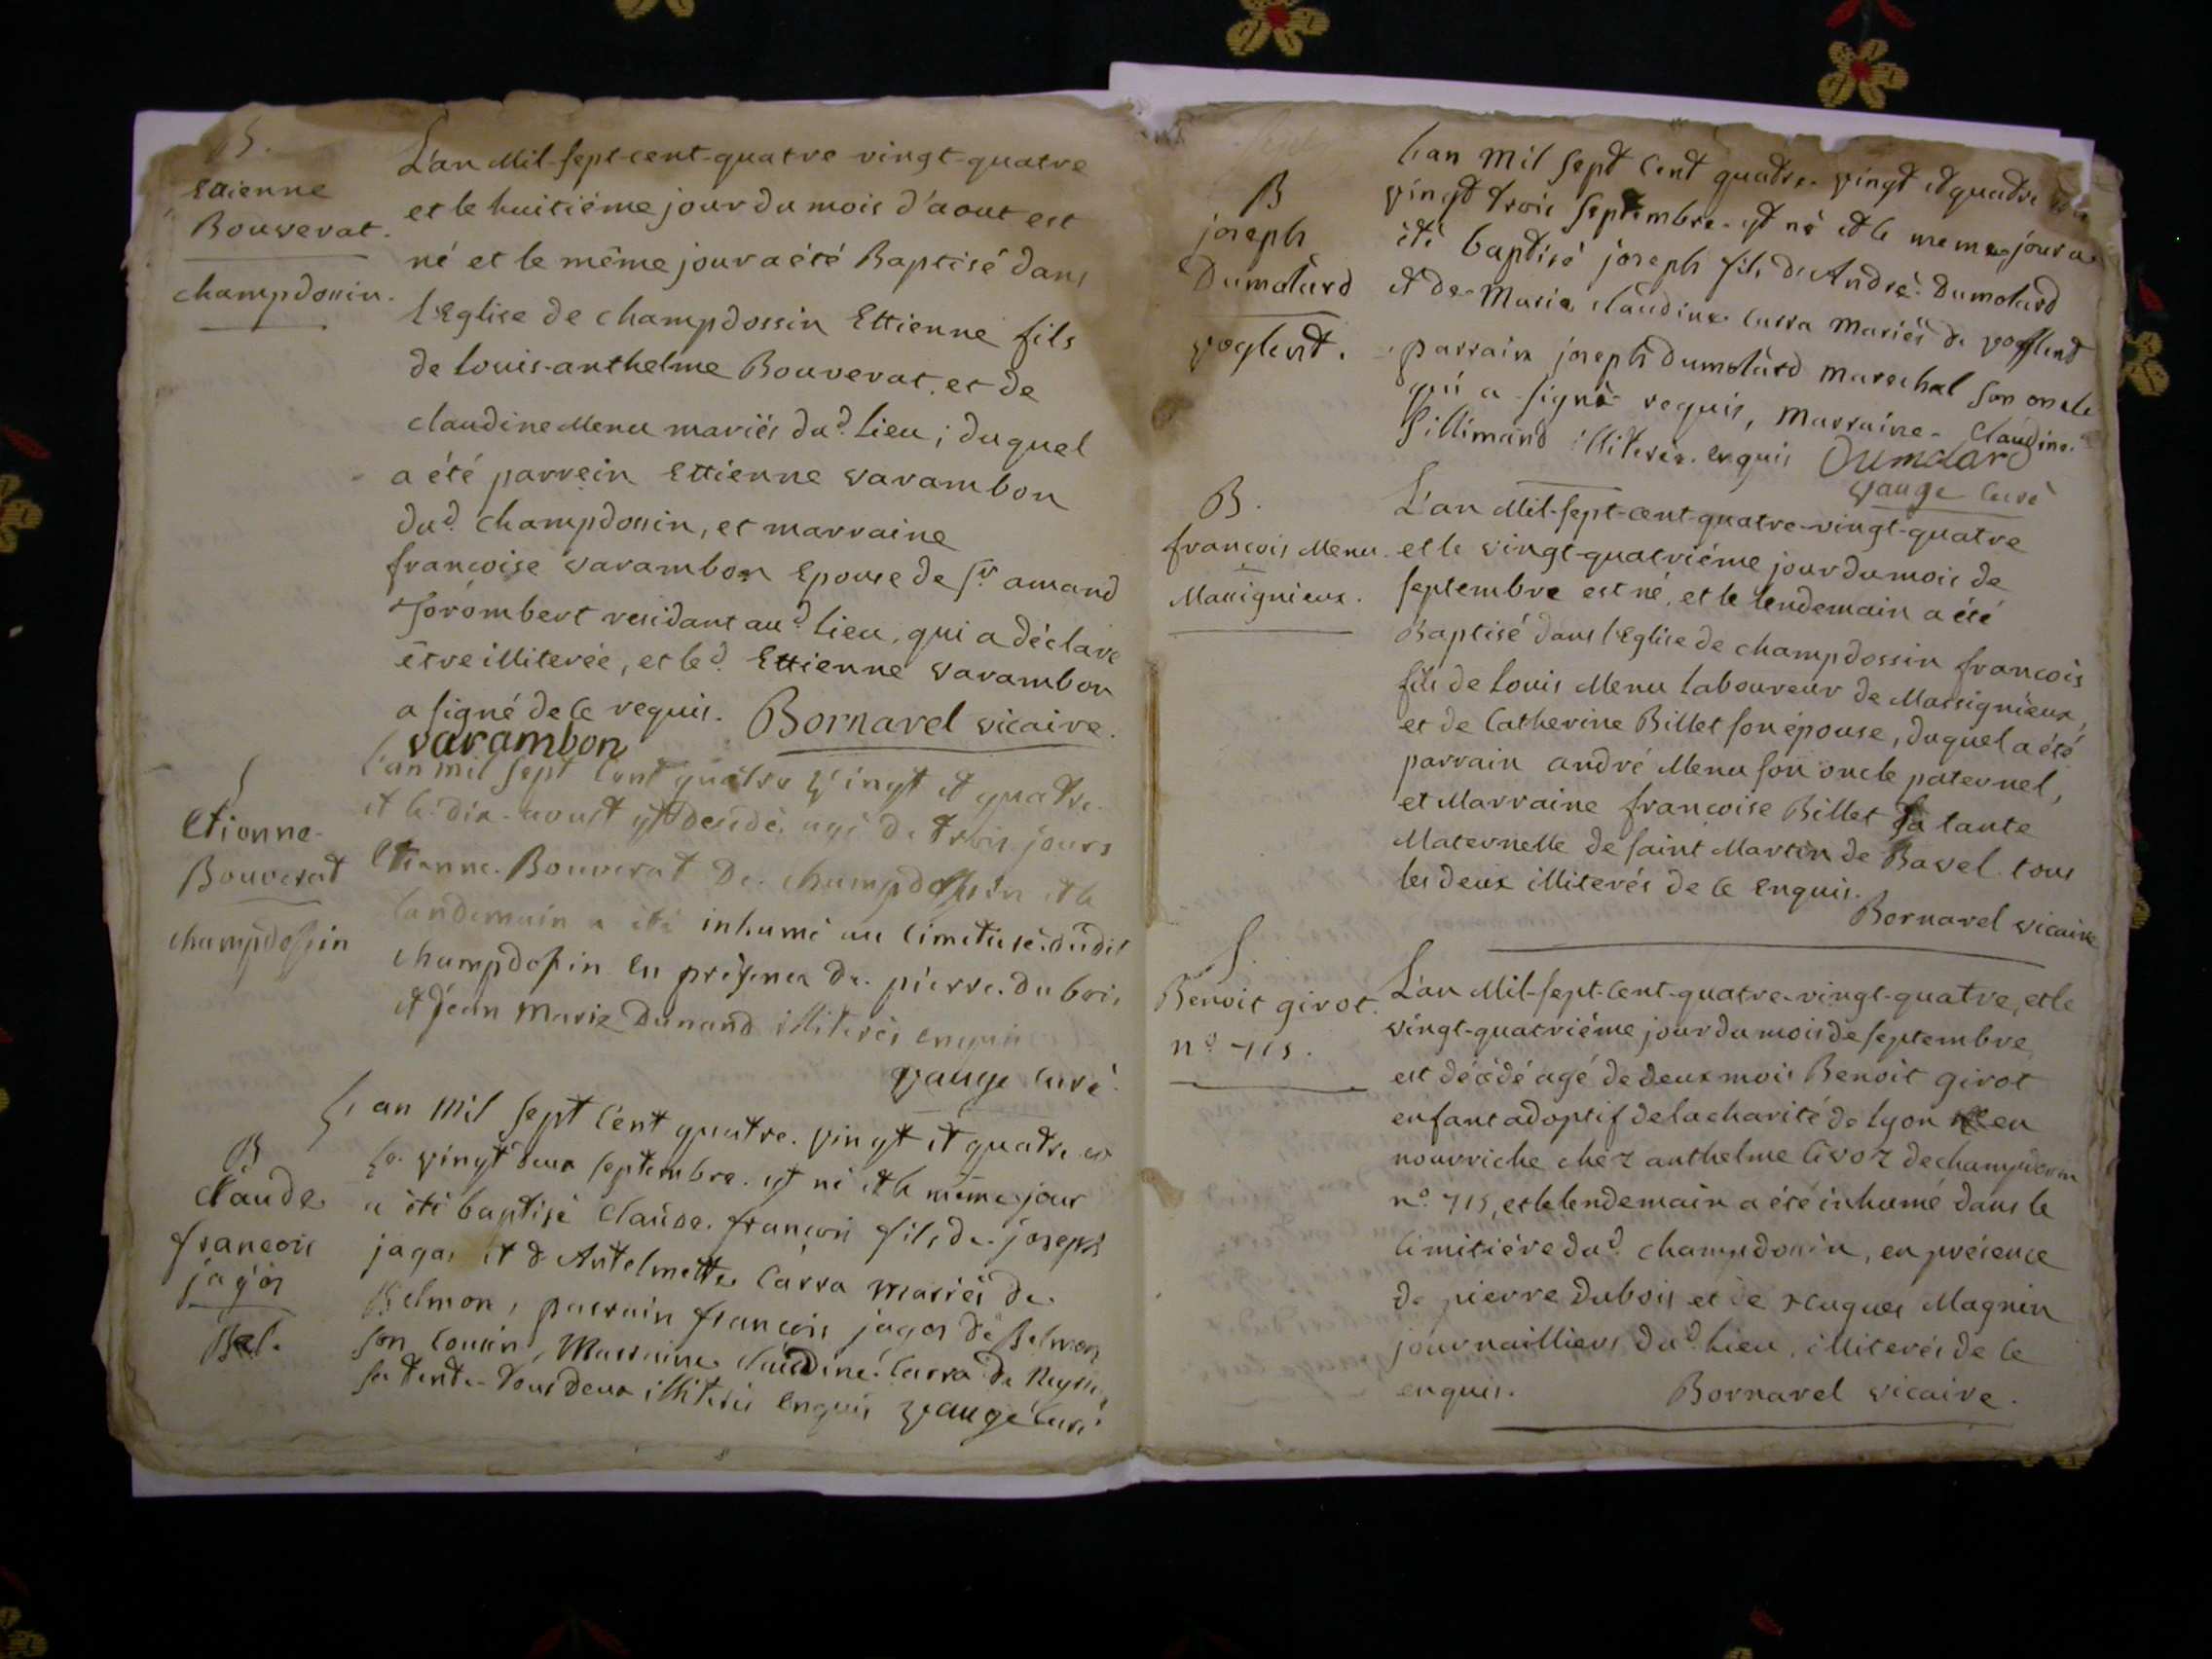 B.
Etienne
Bouverat.
champdossin.
L'an Mil-sept-cent-quatre-vingt-quatre
et le huitiéme jour du mois d'aout est
né et le même jour a été Baptisé dans
l'Eglise de champdossin Ettienne fils
de Louis-anthelme Bouverat, et de
claudine Menu mariés dud. Lieu; duquel
a été parrein Ettienne varambon
dud. champdossin, et marraine
francoise varambon Epouse de Sr. amand
Jorombert residant aud. Lieu, qui a déclaré
être illiterée, et led. Ettienne varambon
a signé de ce requis. Bornarel vicaire.
varambon
S
Etienne
Bouverat
champdossin
L'an mil sept Cent quatre vingt et quatre
et le dix aoust est decedé agé de trois jours
Etienne Bouverat de champdossin et le
landemain a été inhumé au Cimetiere dudit
champdossin en présence de pierre dubois
et Jean Marie Dunand illiterés enquis
vauge curé
B
claude
francois
jagos
Bel.
L'an mil sept Cent quatre vingt et quatre et
le vingt deux septembre est né et le même jour
a été baptisé Claude françois fils de joseph
jagos et d'Antelmette Carra mariés de
Belmon, parrain françois jagos de Belmon
son cousin, Marraine claudine Carra de
sa tante tous deux illiterés enquis vauge curé
B
joseph
Dumolard
voglent.
L'an mil sept Cent quatre vingt et quatre
vingt trois septembre est né et le meme jour a
été baptisé joseph fils de André Dumolard
et de Marie claudine Carra mariés de voglent
parrain joseph dumolard marechal son oncle
qui a signé requis, marraine Claudine
Sillimand illiterée enquis Dumolard
vauge curé
B.
francois Menu.
Massignieux.
L'an Mil-sept-cent-quatre-vingt-quatre
et le vingt-quatriéme jour du mois de
septembre est né, et le lendemain a été
Baptisé dans l'Eglise de champdossin francois
fils de Louis Menu Laboureur de Massignieux,
et de Catherine Billet son épouse, duquel a été
parrain andré Menu son oncle paternel,
et Marraine francoise Billet sa tante
Maternelle de saint Martin de Bavel tous
les deux illiterés de ce Enquis.
Bornarel vicaire
S.
Benoit girot.
no. 715.
L'an Mil-sept-Cent-quatre-vingt-quatre, et le
vingt-quatriéme jour du mois de septembre
est décédé agé de deux mois Benoit girot
enfant adoptif de la charité de Lyon en
nourriche chéz anthelme Civoz de champdossin
no. 715, et le lendemain a été inhumé dans le
Cimitiére dud. champdossin, en présence
de pierre Dubois et de Hugues Magnin
journailliers dud. Lieu, illiterés de ce
enquis. Bornarel vicaire.